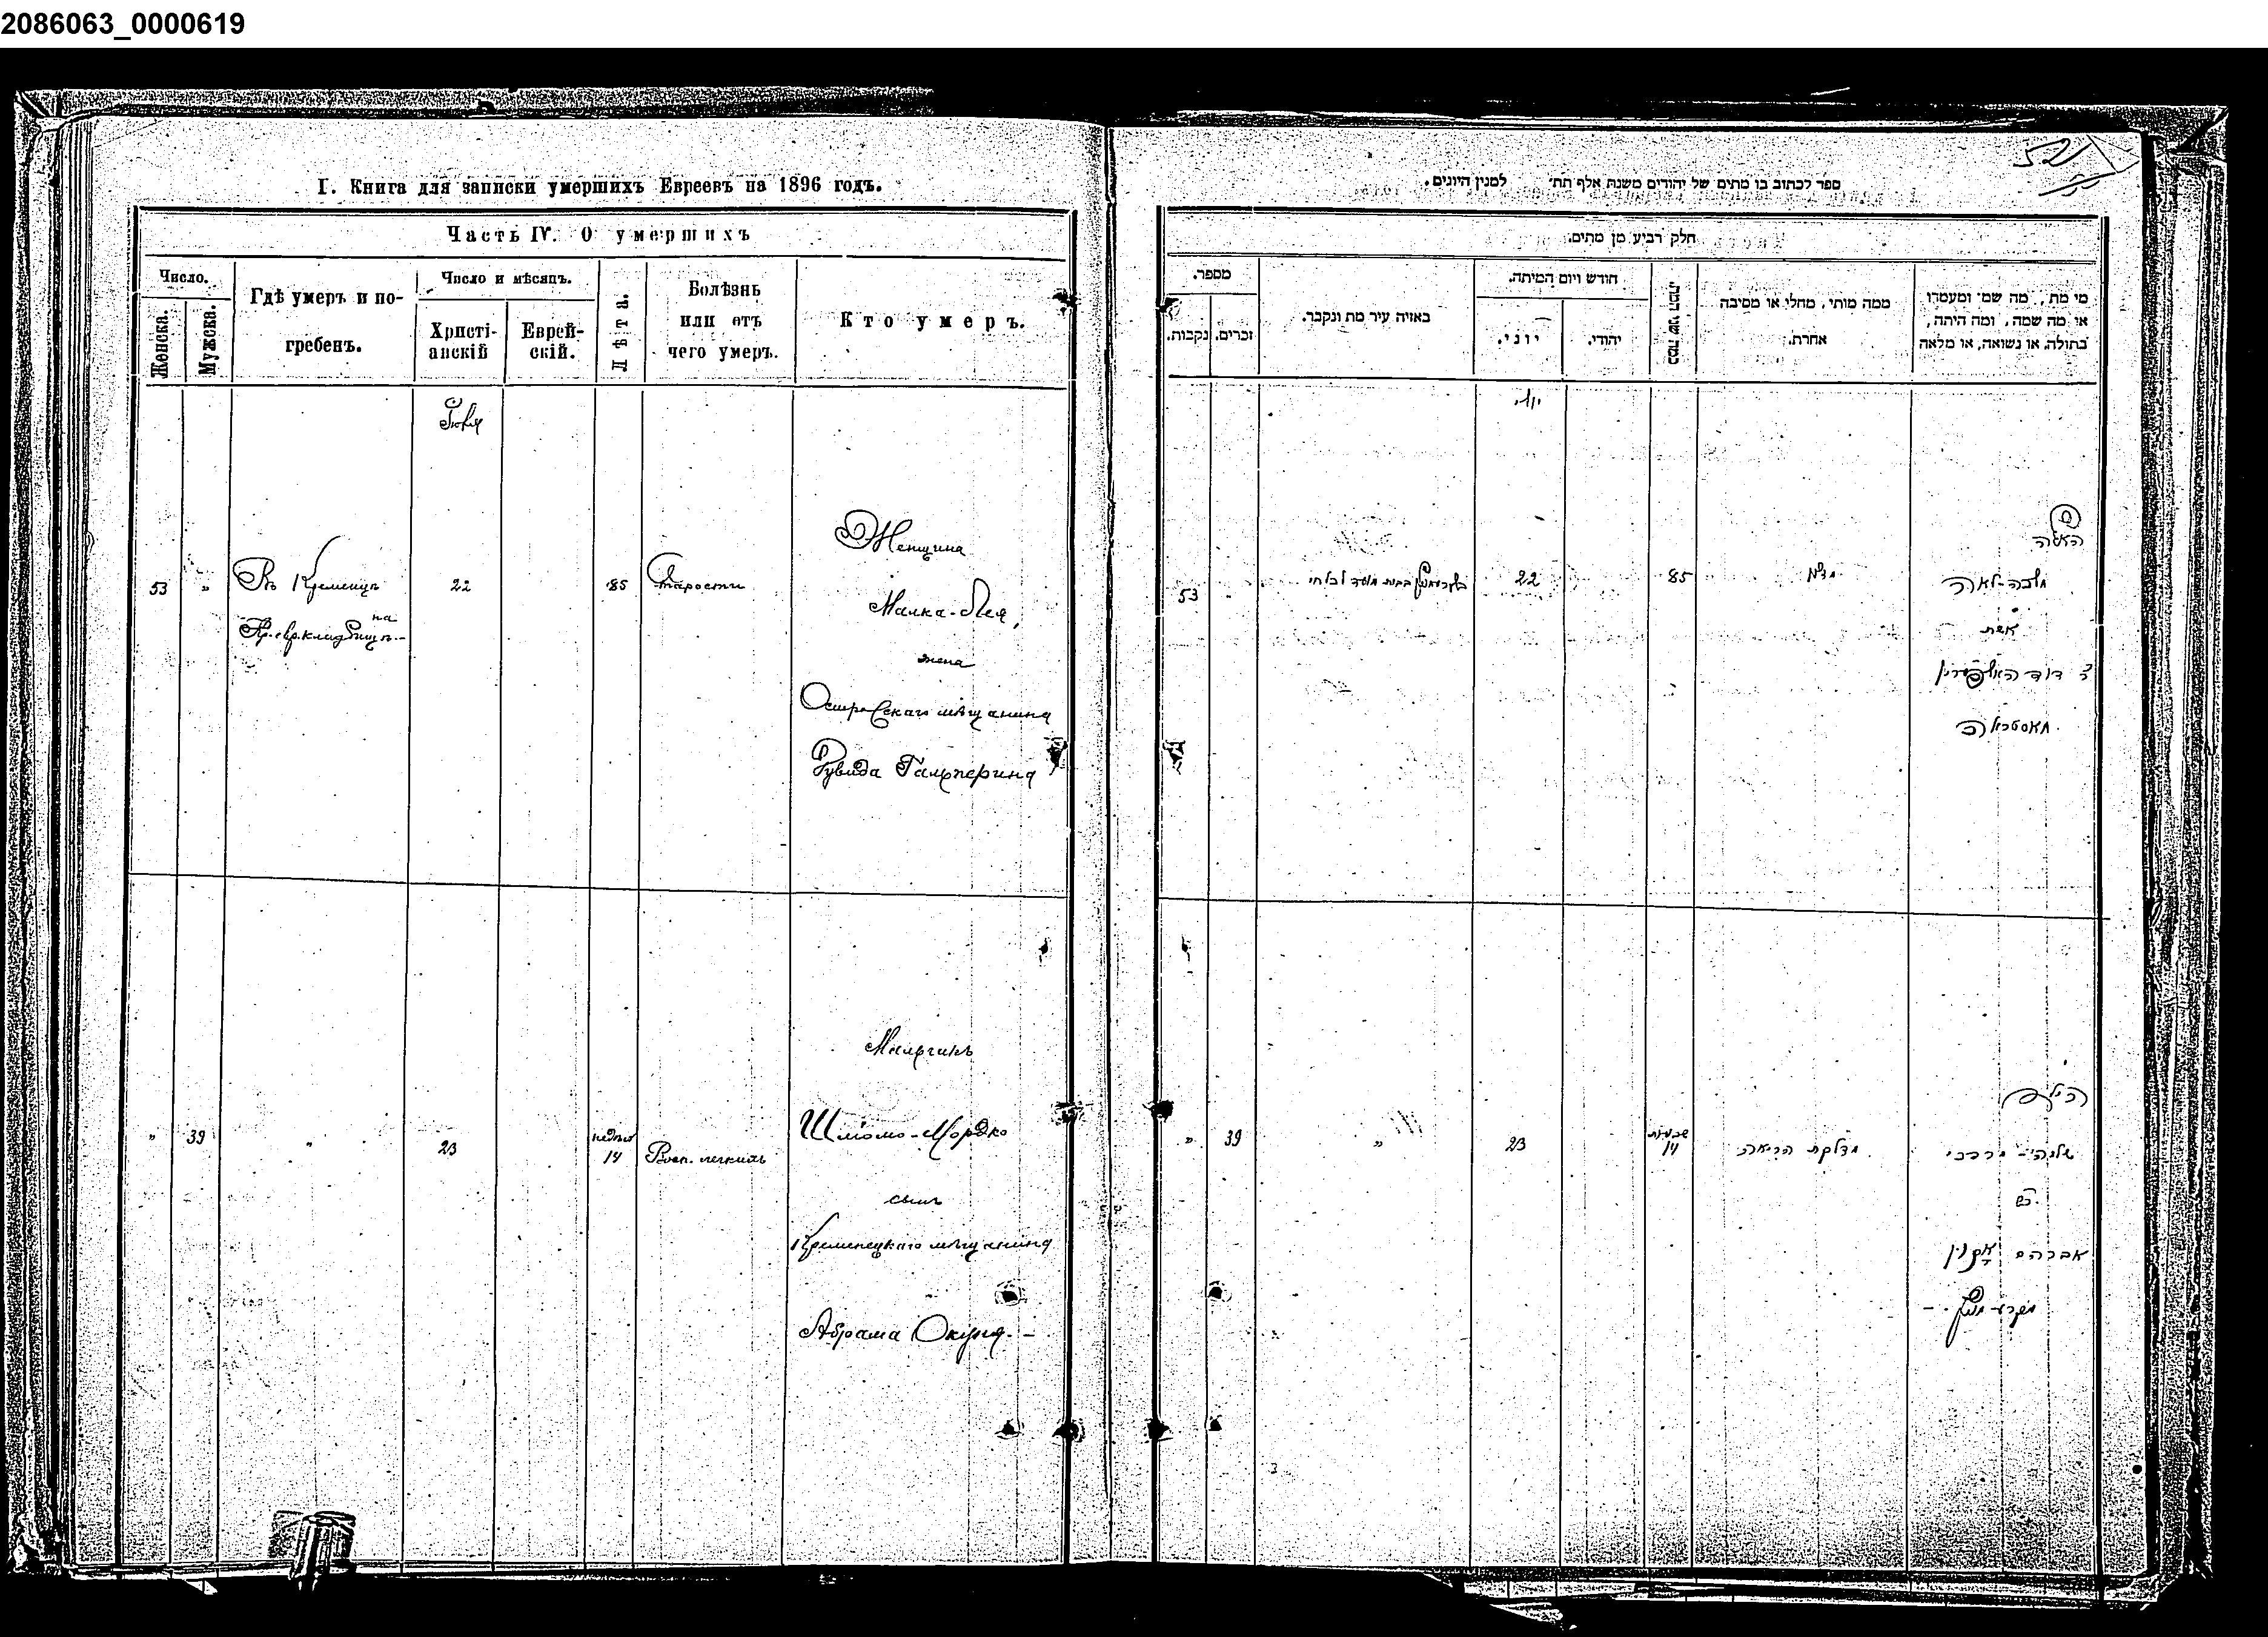 2086063_0000619
I. Книга для записки умершихъ Евреевъ на 1896 годъ.
Часть IV. О умершихъ
Число.
Женска.
Мужска.
Гдѣ умеръ и по-
гребенъ.
Число и мѣсяцъ.
Христі-
анскій
Еврей-
скій.
Лѣта.
Болѣзнь
или отъ
чего умеръ.
Кто умеръ.
53
"
Въ Кременцѣ
на
Кр. евр. кладбищѣ.-
22
85
Старости
Женщина
Малка-Лея,
жена
Островскаго мѣщанина
Гальперина
"
39
"
23
недѣль
14
Восп. легкихъ
Мальчикъ
Шлёмо-Мордко
сынъ
Кременецкаго мѣщанина
Абрама Окуня.-
52
ספר לכתוב בו מתים של יהודים משנת אלף תת' למנין היונים.
חלק רביע מן מתים.
מספר.
נקבות.
זכרים.
באיזה עיר מת ונקבר.
חודש ויום המיתה.
יוני.
יהודי.
כמה שני המת.
ממה מותי, מחלי או מסיבה
אחרת.
מי מת, מה שמו ומעמדו
או מה שמה, ומה היתה,
בתולה, או נשואה, או מלאה
יולי
53
22
85
האשה
מלכה-לאה
אשת
"
39
"
23
שבועות
14
דלקת הריאה
הילד
מרדכי
אברהם אקון